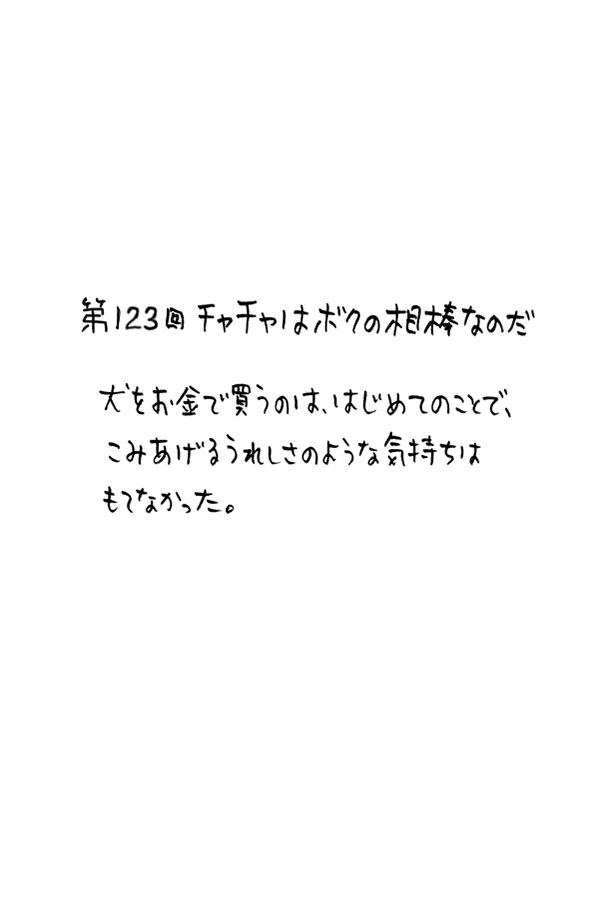 第123回 チャチャはボクの相棒なのだ
犬をお金で買うのは、はじめてのことで、
こみあげるうれしさのような気持ちは
もてなかった。